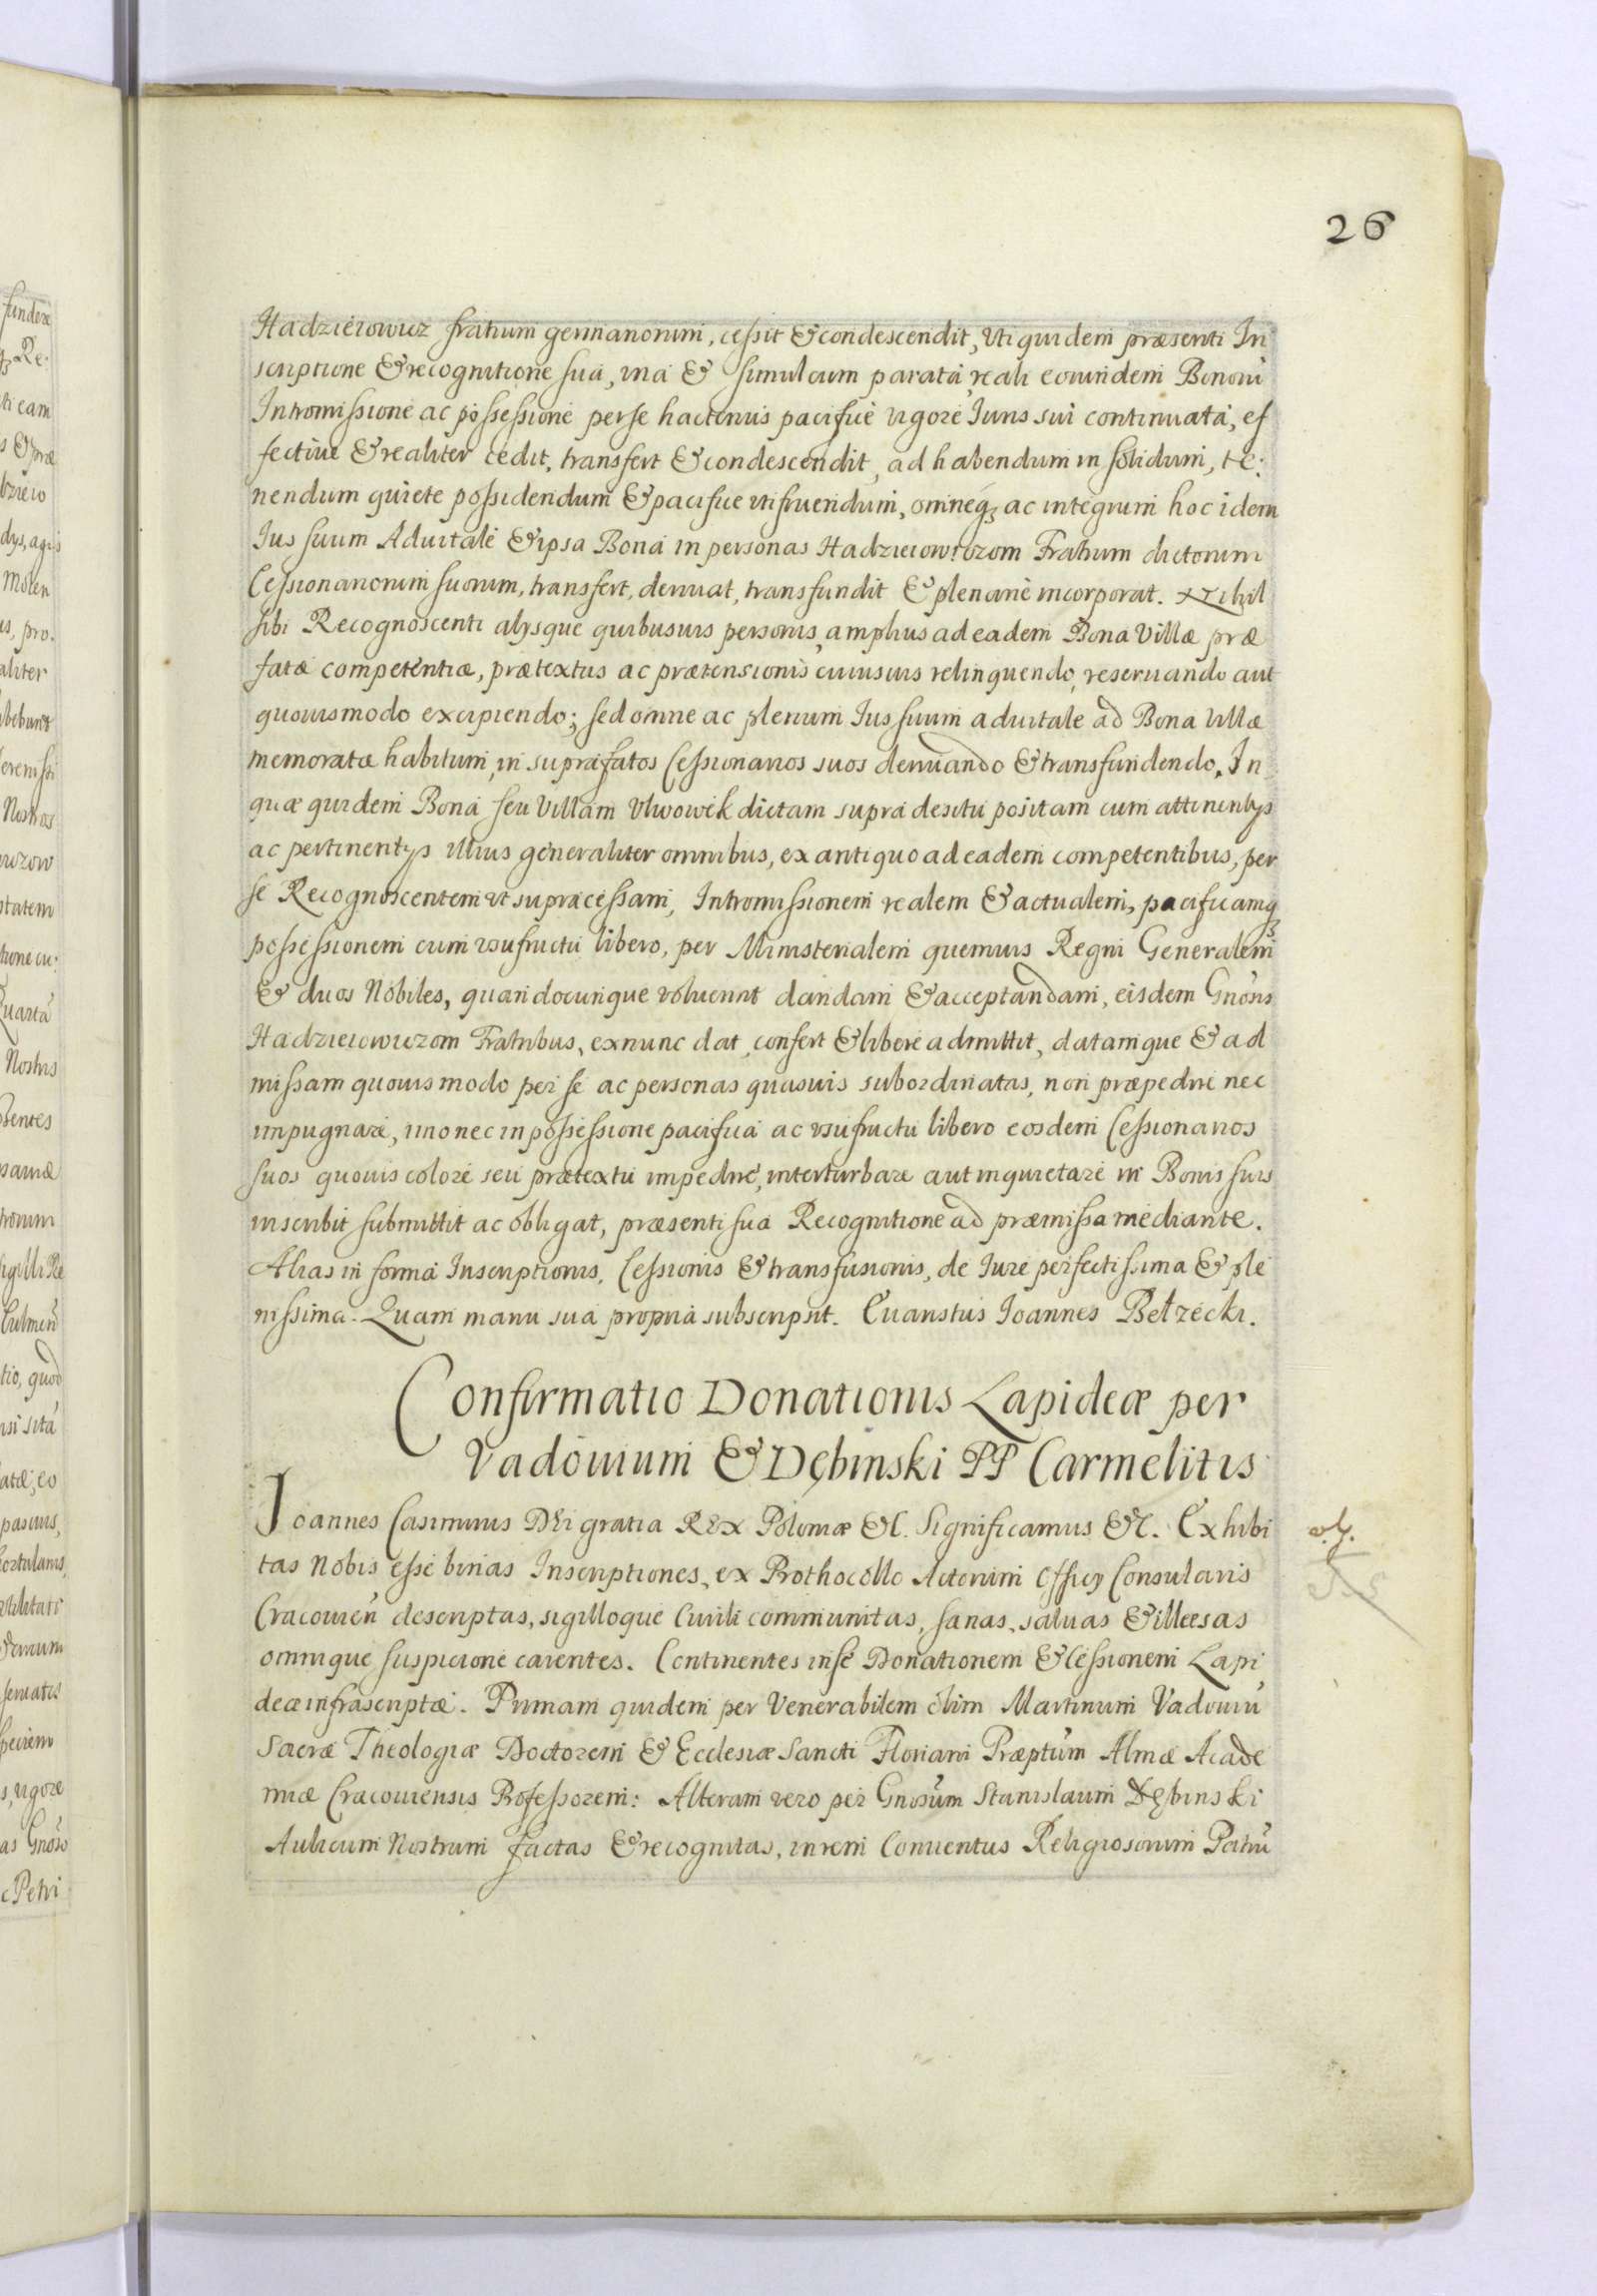 26
Hadzieiowicz fratrum germanorum, cessit & condescendit, Uti quidem præsenti In
scriptione & recognitione sua, una & simul cum parata reali eorundem Bonorū
Intromissione ac possessione per se hactenus pacifice vigore Iuris sui continuata, ef
fective & realiter cedit, transfert & condescendit, ad habendum in solidum, te:
nendum quiete possidendum & pacifice utifruendum, omneq₃ ac integrum hoc idem
Ius suum Aduitale & ipsa Bona in personas Hadzieiowiczom Fratrum dictorum
Cessionariorum suorum, transfert, deriuat, transfundit & plenarie incorporat. Nihil
sibi Recognoscenti alysque quibusuis personis, amplius ad eadem Bona Villæ præ
fatæ competentiæ, prætextus ac prætensionis cuiusuis relinquendo, reseruando aut
quouismodo excipiendo; sed omne ac plenum Ius suum aduitale ad Bona Villæ
memoratæ habitum, in suprafatos Cessionarios suos deriuando & transfundendo. In
quæ quidem Bona seu Villam Ulwowek dictam supra de situ positam cum attinentys
ac pertinentys illius generaliter omnibus, ex antiquo ad eadem competentibus, per
se Recognoscentem ut supra cessam, Intromissionem realem & actualem, pacificamq₃
possessionem cum usufructu libero, per Ministerialem quemuis Regni Generalem
& duos Nobiles, quandocunque voluerint dandam & acceptandam, eisdem Gnōsis
Hadzieiowiczom Fratribus, ex nunc dat, confert & libere admittit, datamque & ad
missam quouis modo per se ac personas quasuis subordinatas, non præpedire nec
impugnare, imo nec in possessione pacifica ac usufructu libero eosdem Cessionarios
suos quouis colore seu prætextu impedire, interturbare aut inquietare in Bonis suis
inscribit submittit ac obligat, præsenti sua Recognitione ad præmissa mediante.
Alias in forma Inscriptionis, Cessionis & transfusionis, de Iure perfectissima & ple
nissima. Quam manu sua propria subscripsit. Euaristus Ioannes Bełzecki.
Confirmatio Donationis Lapideæ per
Vadouium & Dębinski PP Carmelitis
Ioannes Casimirus DEi gratia REx Poloniæ &c. Significamus &c. Exhibi
tas Nobis esse binas Inscriptiones, ex Prothocollo Actorum Officy Consularis
Cracouieñ descriptas, sigilloque Ciuili communitas, sanas, saluas & illæsas
omnique suspicione carentes. Continentes in se Donationem & Cessionem Lapi
deæ infrascriptæ. Primam quidem per Venerabilem olim Martinum Vadouiū
Sacræ Theologiæ Doctorem & Ecclesiæ Sancti Floriani Præptūm Almæ Acade
miæ Cracouiensis Professorem: Alteram vero per Gnosūm Stanislaum Dębinski
Aulicum Nostrum factas & recognitas, in rem Conuentus Religiosorum Patrū